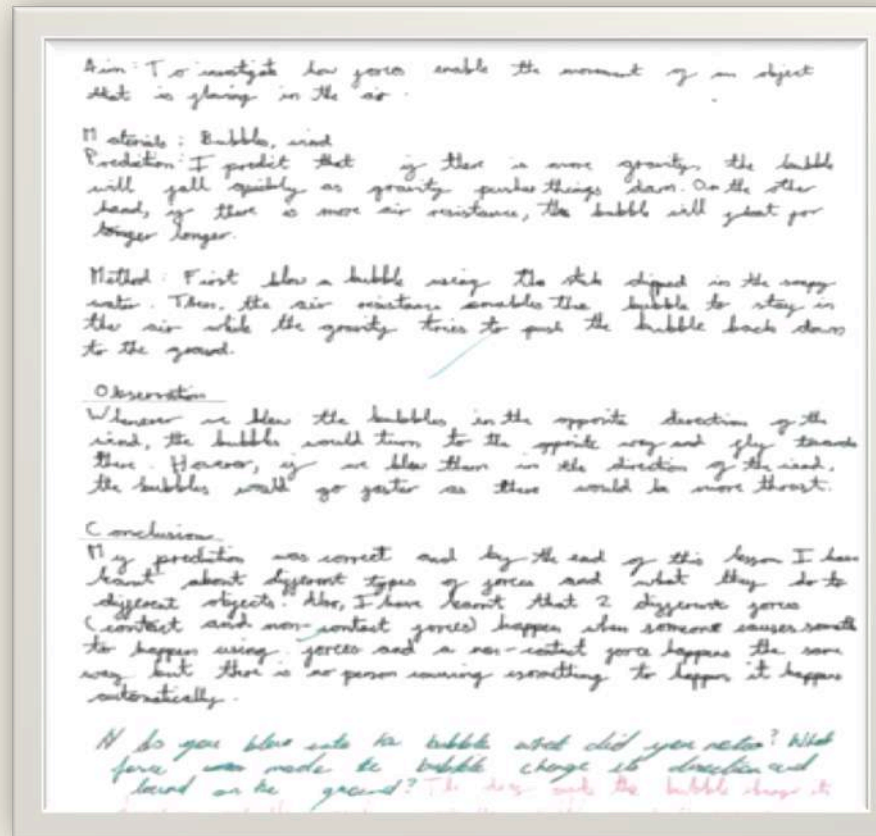 Aim: To investigate how forces enable the movement of an object
that is flowing in the air.
Materials: Bubbles, wind
Prediction: I predict that if there is more gravity, the bubble
will fall quickly as gravity pushes things down. On the other
hand, if there is more air resistance, the bubble will float for
longer longer.
Method: First blow a bubble using the stick dipped in the soapy
water. Then, the air resistance enables the bubble to stay in
the air while the gravity tries to push the bubble back down
to the ground.
Observation
Whenever we blew the bubbles in the opposite direction of the
wind, the bubbles would turn to the opposite way and fly towards
there. However, if we blew them in the direction of the wind,
the bubbles would go faster as there would be more thrust.
Conclusion
My prediction was correct and by the end of this lesson I have
learnt about different types of forces and what they do to
different objects. Also, I have learnt that 2 different forces
(contact and non-contact forces) happen when someone causes
to happen using forces and a non-contact force happens the same
way but there is no person causing something to happen it happens
automatically.
N As you blew into the bubble what did you notice? What
force made the bubble change its direction and
land on the ground? The
the bubble